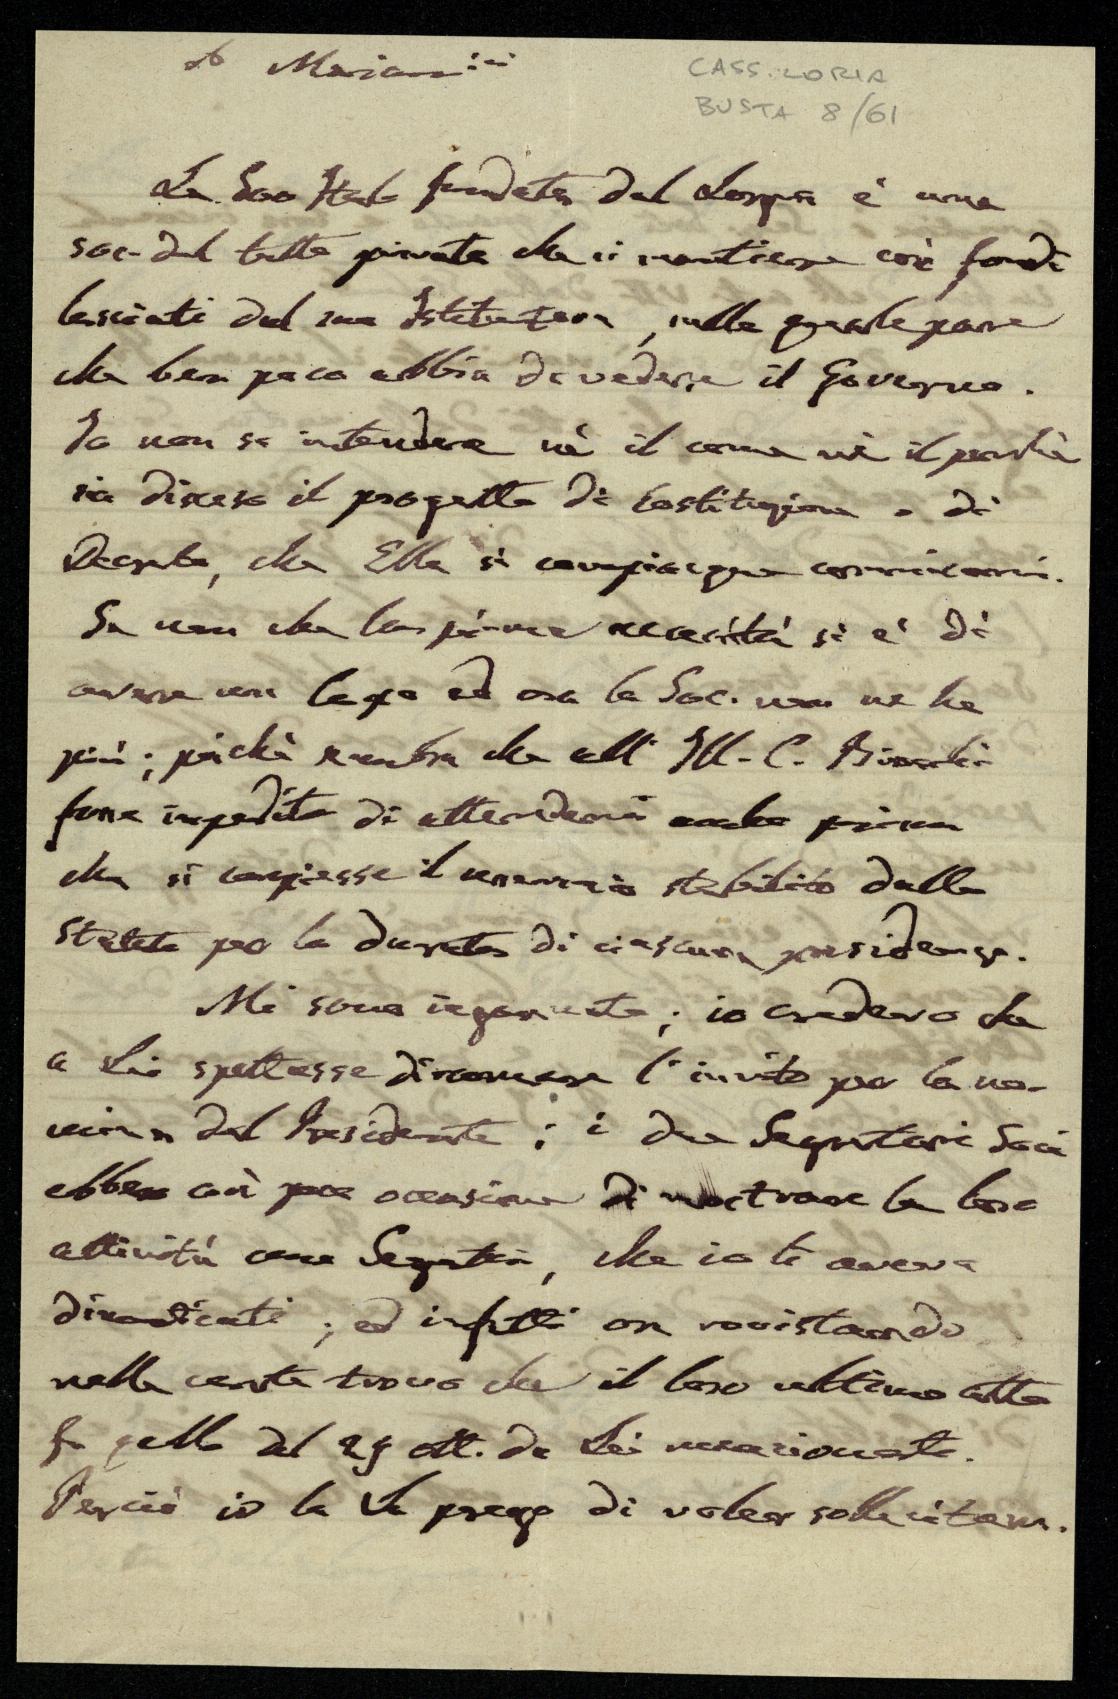 A Marianini
CASS. LORIA
BUSTA 8/61
La Soc Itale fondata dal Lorgna è una
soc. del tutto privata che si mantiene coi fondi
lasciati dal suo Istitutore, nella quale pare
che ben poco abbia da vedere il Governo.
Io non so intendere nè il come nè il perchè
sia disceso il progetto di Costituzione o di
Decreto, che Ella si compiacque comunicarmi.
Se non che la prima necessità si è di
avere un Capo ed ora la Soc. non ne ha
più; poichè sembra che all' Ill. C. Bianchi
fosse impedito di attendervi anche prima
che si compiesse il sessennio stabilito dallo
Statuto per la durata di ciascuna presidenza.
Mi sono ingannato; io credevo che
a Lei spettasse diramare l'invito per la no-
mina del Presidente; i due Segretari Soci
ebbero così poca occasione di mostrare la loro
attività come Segretari, che io li aveva
dimenticati; ed infatti or rovistando
nelle carte trovo che il loro ultimo atto
fu quello del 29 ott. da Lei menzionato.
Perciò io la prego di voler sollecitare